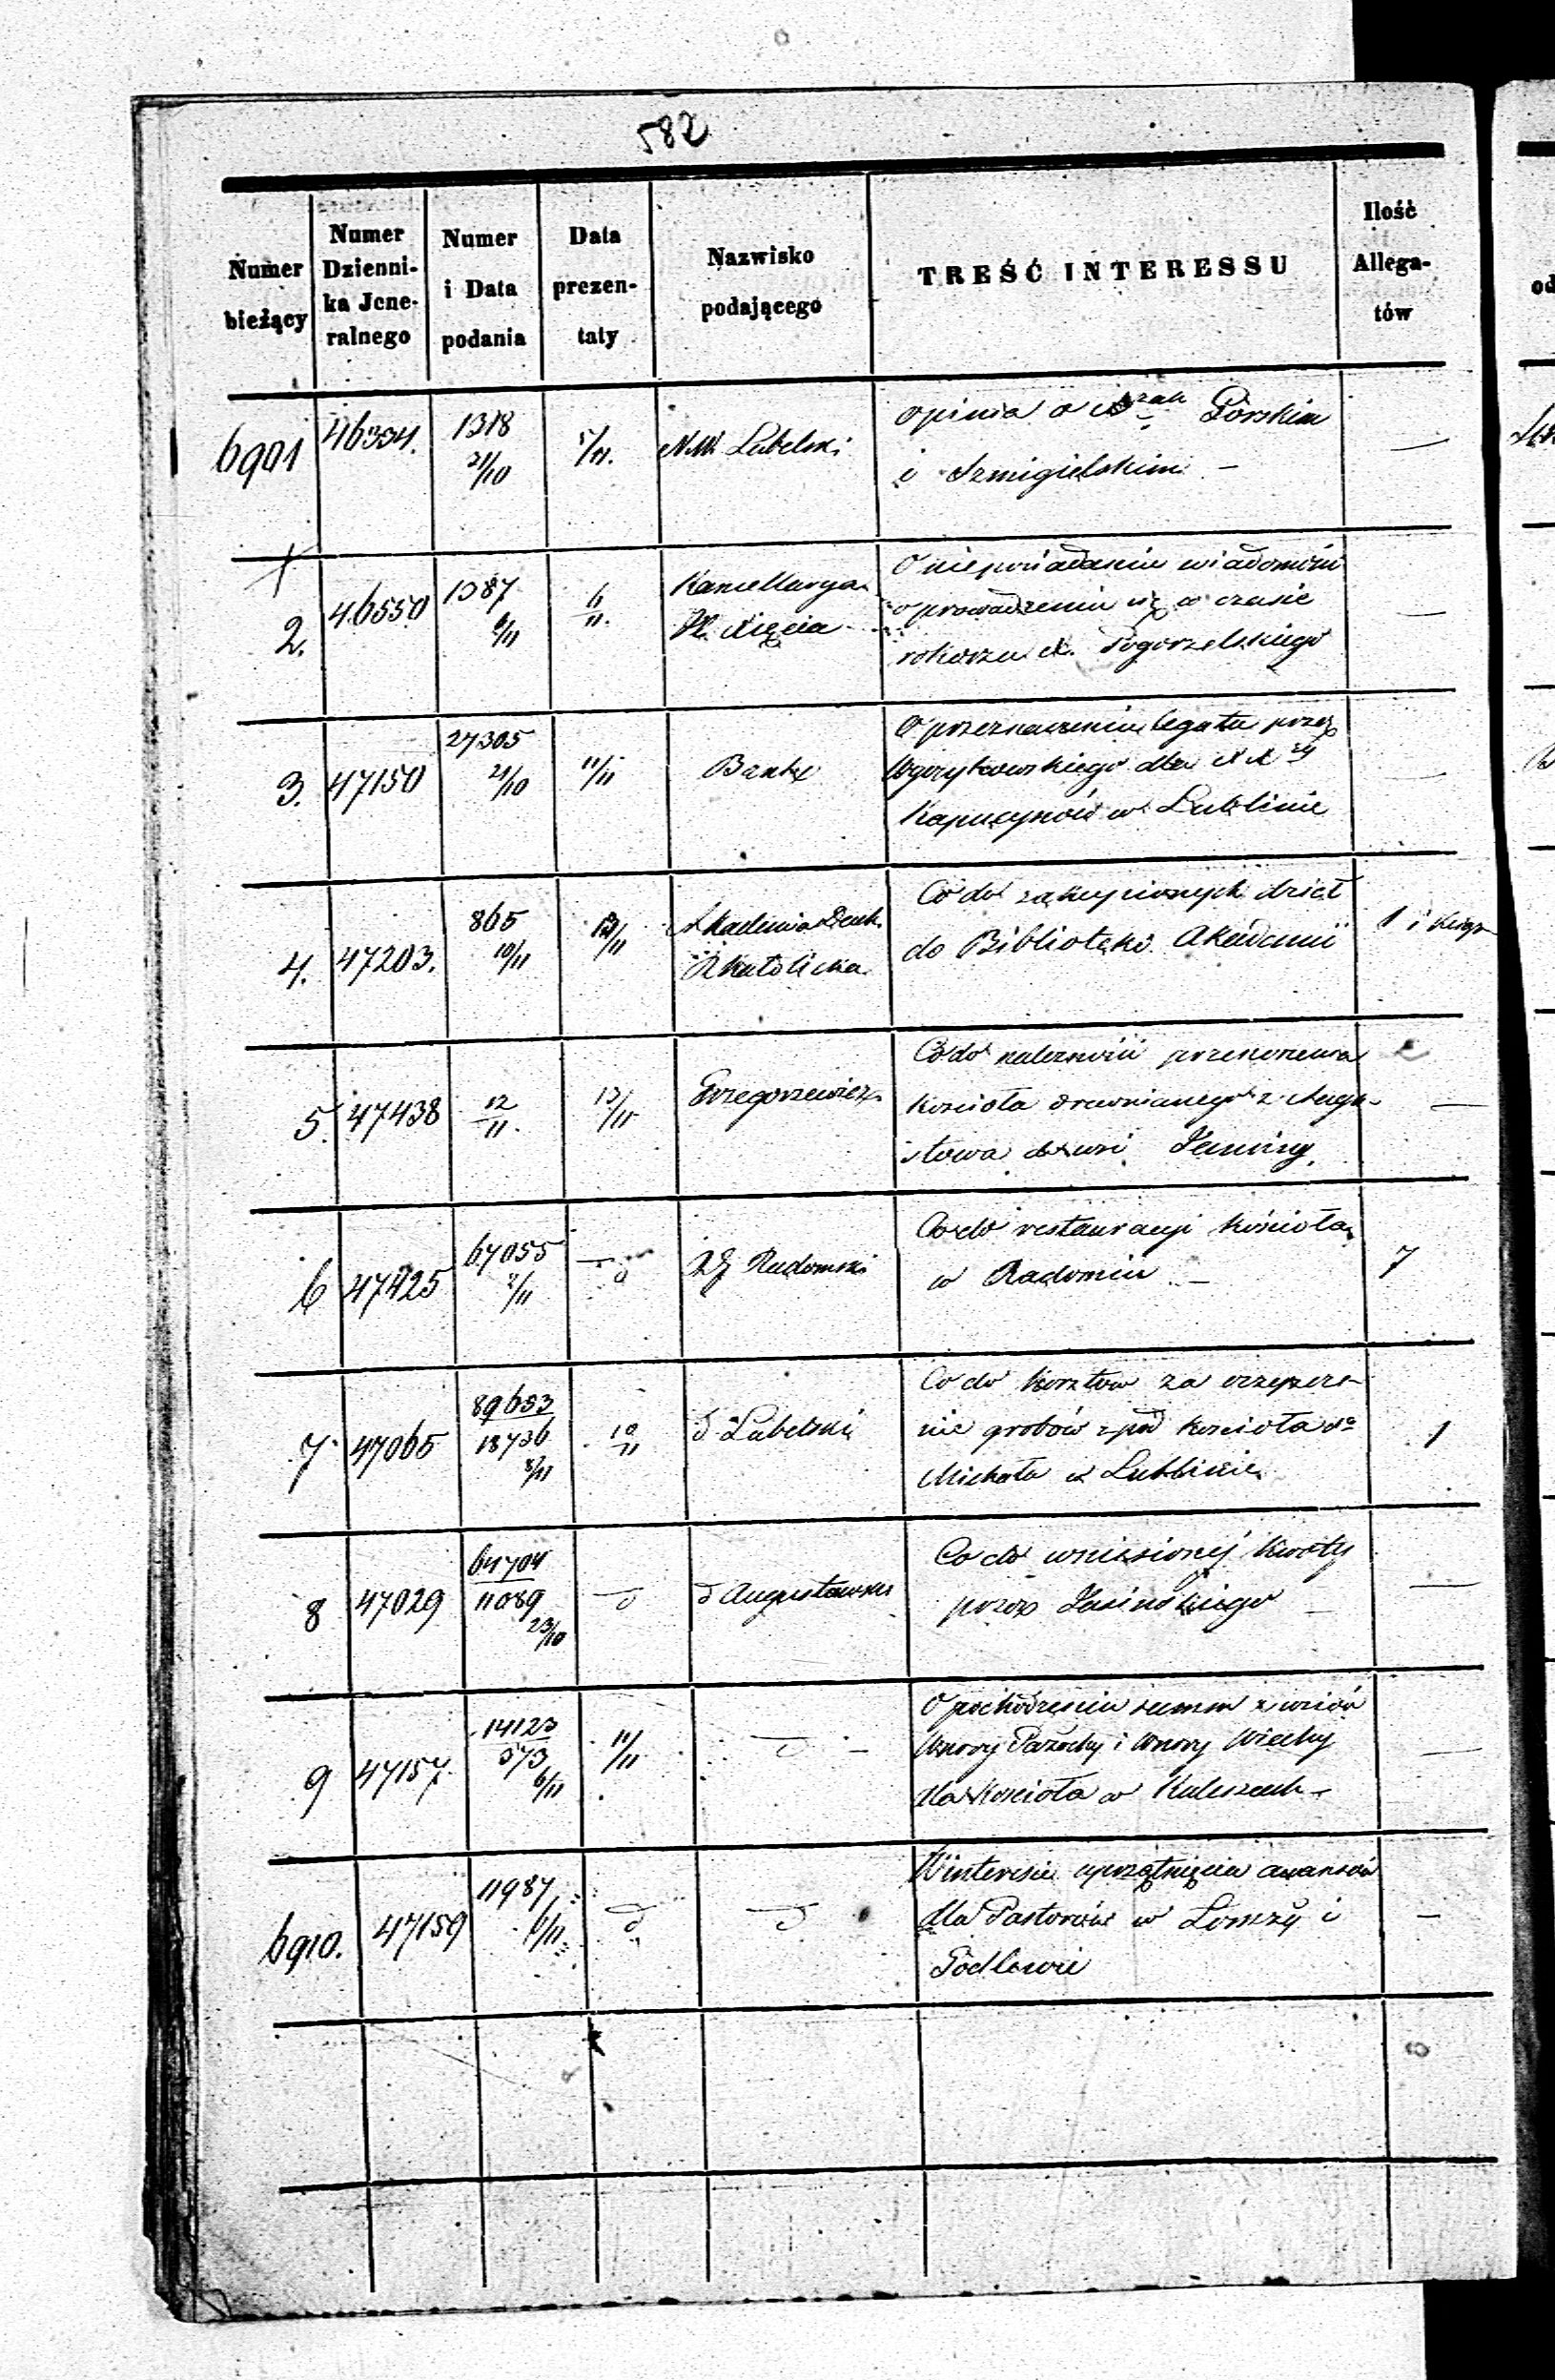 582
Numer bieżący
Numer Dzienni-ka Jene-ralnego
Numer i Data podania
Data prezen-taty
Nazwisko podającego
TREŚĆ INTERESSU
Ilość Allega-tów
6901
46334.
1318
21/10
5/11.
Lubelski
opinia o Górskim
i Szmigielskim –
2.
46550
1387
6/11
6/11.
Kancellarya
Księcia
O nieposiadaniu wiadomości
o prowadzeniu się w czasie
rokoszu X. Pogorzelskiego
3.
47150
27305
21/10
11/11
Bank
O przeznaczeniu legatu przez
dla XX
Kapucynów w Lublinie
4.
47203.
865
10/11
12/11
Akademia Duch.
RKatolicka
Co do zakupionych dzieł
do Biblioteki Akademii
1 i
5.
47438
12/11.
13/11
Grzegorzewicz
Co do należności przeniesienia
kościoła drewnianego z Augu-
stowa do wsi Janówy
—
6
47425
67055
2/11
d
Radomski
Co do restauracyi kościoła
w Radomiu –
7
7
47065
89653
18736
8/11
10/11
d Lubelski
Co do kosztów za oczyszcze-
nie grobów z pod kościoła Sgo
Michała w Lublinie
1
8
47029
64704
11089
23/10
d
d Augustowski
Co do wniesionej kwoty
przez Jasińskiego –
—
9
47157.
14123
573
6/11
11/11
d –
O pochodzeniu summ z wsiów
Wnory Pażochy i Wnory Wiechy
dla kościoła w Kuleszach –
—
6910.
47159
11987
6/11
d
d
W interesie uprzątnięcia awansów
dla Pastorów w Łomży i
—